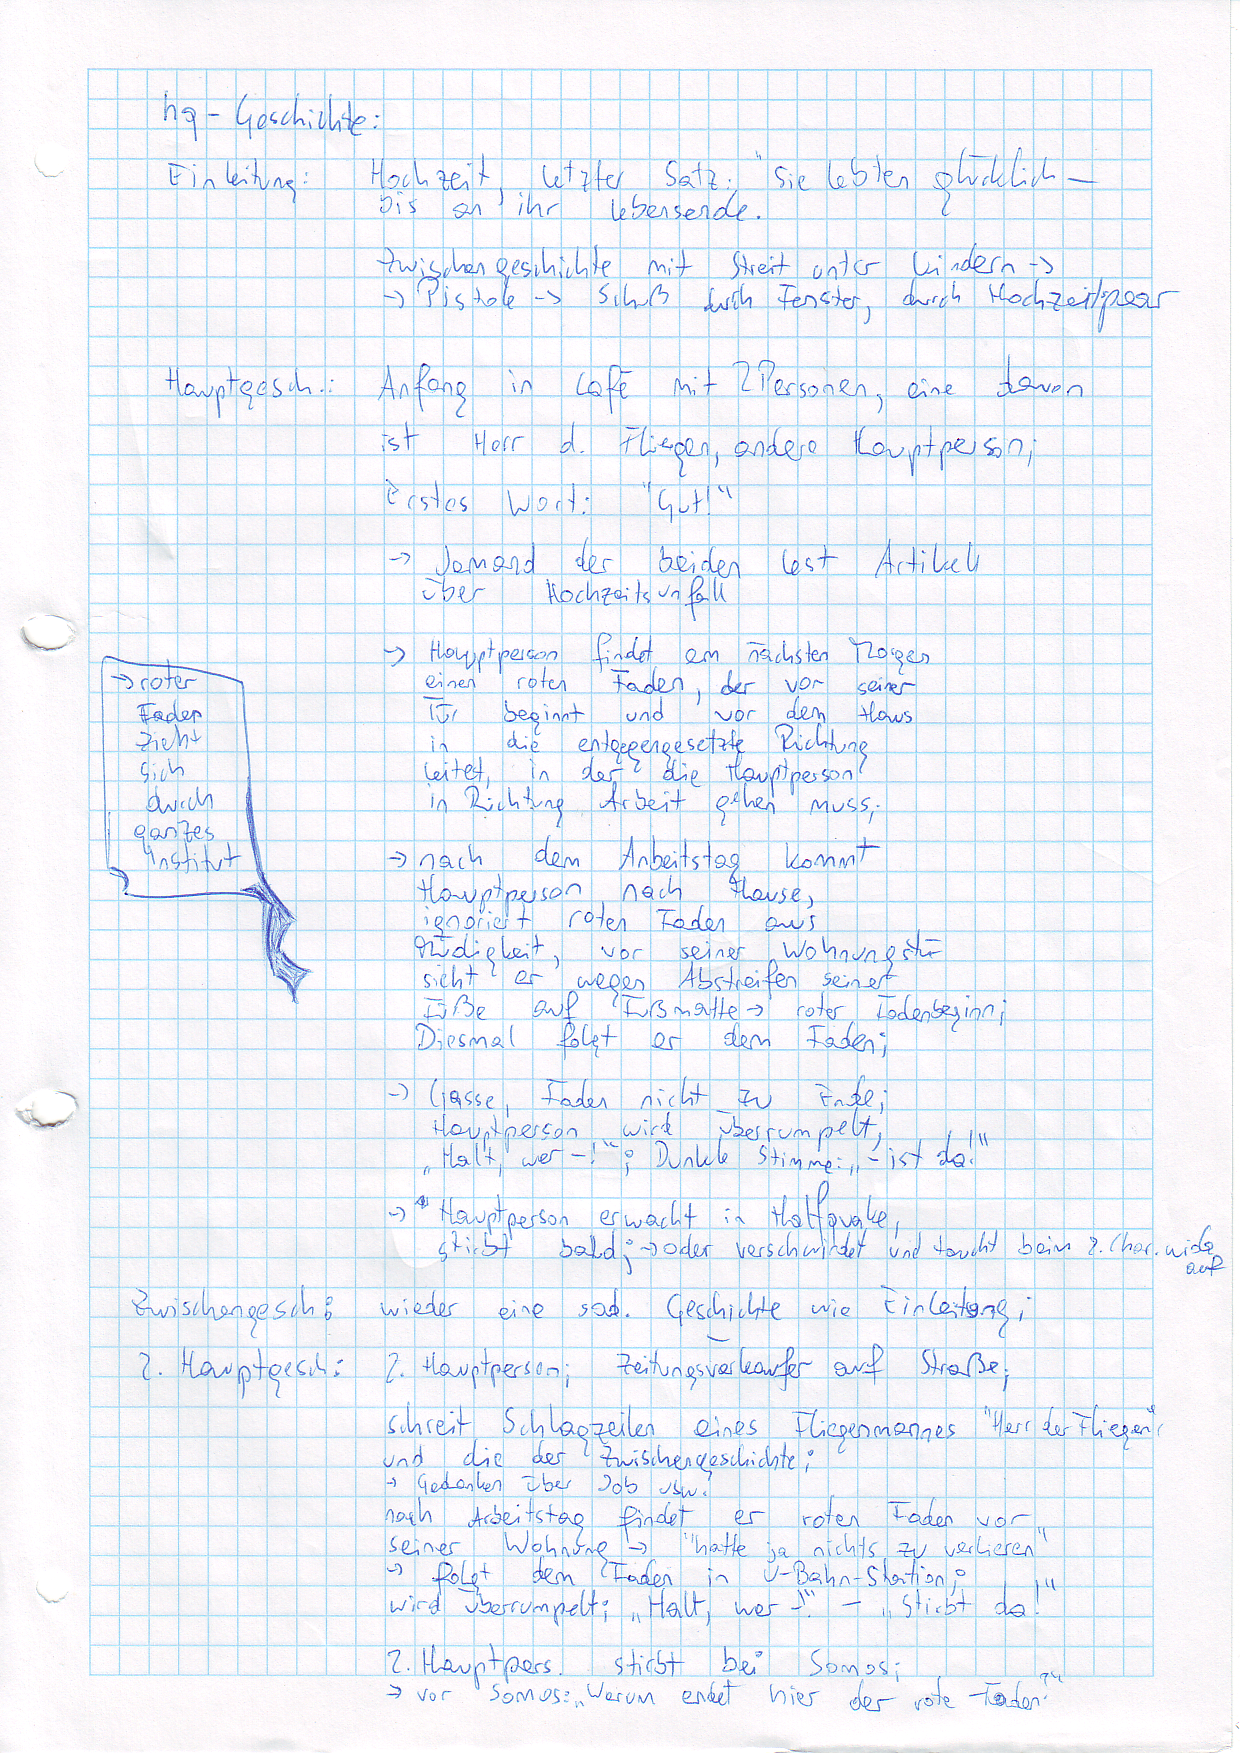 hq - Geschichte:
Einleitung: Hochzeit, letzter Satz: "Sie lebten glücklich —
bis an ihr Lebensende.
Zwischengeschichte mit Streit unter Kindern →
→ Pistole → Schuß durch Fenster, durch Hochzeitspaar
Hauptgesch.: Anfang in Café mit 2 Personen, eine davon
ist Herr d. Fliegen, andere Hauptperson;
Erstes Wort: "Gut!"
→ Jemand der beiden lest Artikel
über Hochzeitsunfall
→ Hauptperson findet am nächsten Morgen
einen roten Faden, der vor seiner
Tür beginnt und vor dem Haus
in die entgegengesetzte Richtung
leitet, in der die Hauptperson
in Richtung Arbeit gehen muss;
→ roter
Faden
zieht
sich
durch
ganzes
Institut
→ nach dem Arbeitstag kommt
Hauptperson nach Hause,
ignoriert roten Faden aus
Müdigkeit, vor seiner Wohnungstü
sieht er wegen Abstreifen seiner
Füße auf Fußmatte → roter Fadenbeginn;
Diesmal folgt er dem Faden;
→ Gasse, Faden nicht zu Ende;
Hauptperson wird überrumpelt,
„Halt, wer -!"; Dunkle Stimme: „- ist da!"
→ Hauptperson erwacht in
stirbt bald; → oder verschwindet und taucht beim 2. Char. wieder
auf
Zwischengesch: wieder eine sad. Geschichte wie Einleitung;
2. Hauptgesch: 2. Hauptperson; Zeitungsverkäufer auf Straße;
schreit Schlagzeilen eines Fliegenmannes "Herr der Fliegen"
und die der Zwischengeschichte;
→ Gedanken über Job usw.
nach Arbeitstag findet er roten Faden vor
seiner Wohnung → "hatte ja nichts zu verlieren"
→ folgt dem Faden in U-Bahn-Station;
wird überrumpelt; „Halt, wer -!" - „Stirbt da!"
2. Hauptpers. stirbt bei Somos;
→ vor Somos: „Warum endet hier der rote Faden?"